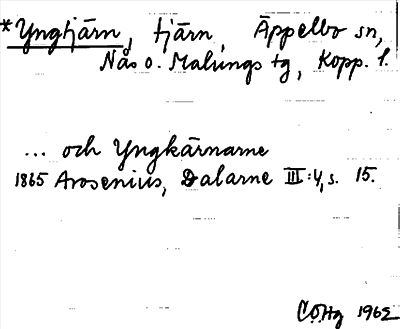 *Yngtjärn, tjärn, Äppelbo sn,
Nås o. Malungs tg, Kopp. l.
... och Yngkärnarne
1865 Arosenius, Dalarne III:4, s. 15.
C.O.Hg 1962